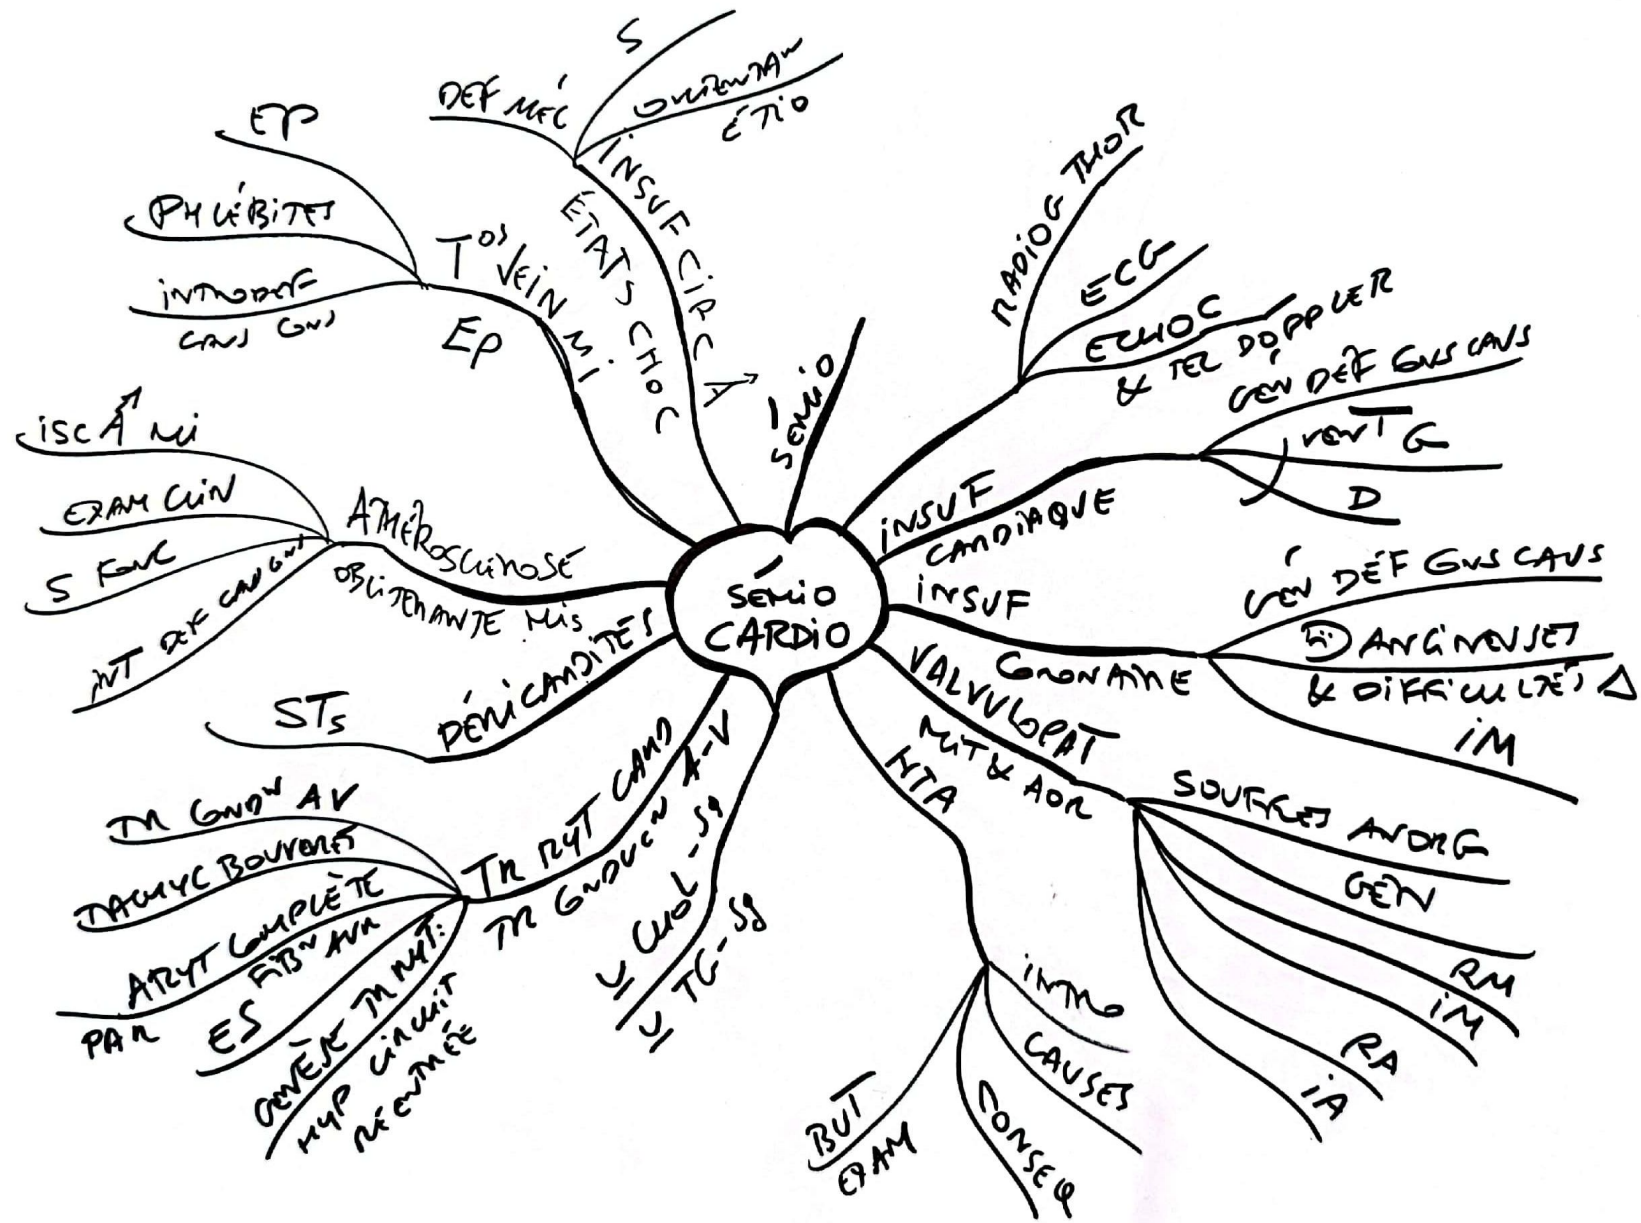 SÉMIO
CARDIO
SÉMIO
RADIOG THOR
ECG
ECHOC
& TEC DOPPLER
INSUF
CARDIAQUE
GÉN DÉF GNS CAUS
VENT G
D
INSUF
CORONAIRE
GÉN DÉF GNS CAUS
ANGINEUSES
& DIFFICULTÉS Δ
IM
VALVULOPAT
MIT & AOR
SOUFFLES ANORG
GEN
RM
IM
RA
IA
HTA
INTRO
CAUSES
CONSEQ
BUT
EXAM
CHOL - SG
TG - SG
TR RYT CARD
TR CONDUCN A-V
TR CONDN AV
TACHYC BOUVERET
ARYT COMPLÈTE
PAR FIBN AUR
ES
GENÈSE TR RYT:
HYP CIRCUIT
RÉENTRÉE
PÉRICARDITES
STS
ATHÉROSCLÉROSE
OBLITERANTE MIS
ISC A MI
EXAM CLIN
S FONC
INT DEF CAU GNS
TOS VEIN MI
EP
EP
PHLÉBITES
INTRO DEF
CAUS GNS
INSUF CIRC A
ÉTATS CHOC
DEF MÉC
S
ORIENTAN
ÉTIO